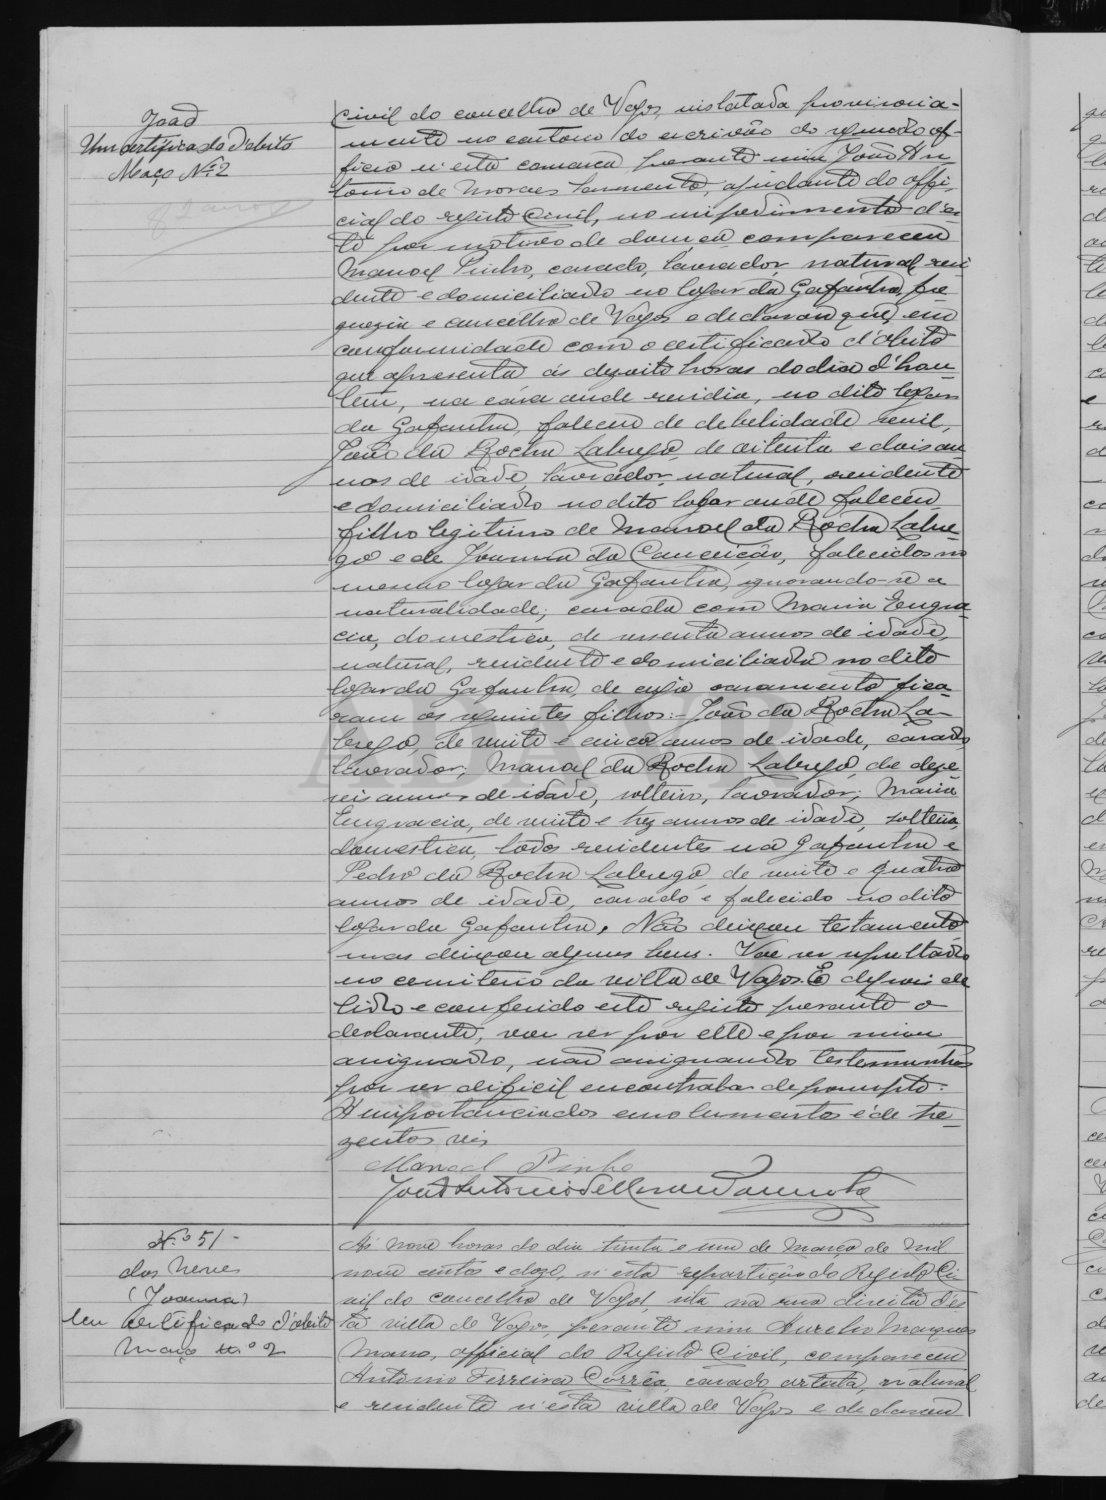 João
Um certificado d'obito
Maço Nº 2
civil do concelho de Vagos, installada provisoria-
mente no cartorio do escrivão do segundo of-
ficio n'esta comarca, perante mim João An-
tonio de Moraes Sarmento, ajudante do offi-
cial do registo Civil, no impedimento d'es-
te por motivo de doença, compareceu
Manoel Pinho, casado, lavrador, natural, resi
dente e domiciliado no logar da Gafanha, fre
guezia e concelho de Vagos e declarou que, em
conformidade com o certificado d'obito
que apresenta, ás dezoito horas do dia d'hon
tem, na casa onde residia, no dito logar
da Gafanha, falleceu de debelidade senil,
João da Rocha Labrego, de oitenta e dois an
nos de idade, lavrador, natural, residente
e domiciliado no dito logar onde faleceu,
filho legitimo de Manoel da Rocha Labre-
go e de Joanna da Conceição, falecidos no
mesmo logar da Gafanha, ignorando-se a
naturalidade; casado com Maria Engra
cia, domestica, de sessenta annos de idade,
natural, residente e domiciliada no dito
logar da Gafanha, de cujo casamento fica
ram os seguintes filhos:- João da Rocha La-
brego, de vinte e cinco annos de idade, casado,
lavrador; Manoel da Rocha Labrego, de deze-
seis annos de idade, solteiro, lavrador; Maria
Engracia, de vinte e trez annos de idade, solteira,
domestica, todos residentes na Gafanha e
Pedro da Rocha Labrego, de vinte e quatro
annos de idade, casado e falecido no dito
logar da Gafanha. Não deixou testamento
mas deixou alguns bens. Vae ser sepultado
no cemiterio da villa de Vagos. E depois de
lido e conferido este registo perante o
declarante, vae ser por elle e por mim
assignado, não assignando testemunhas
por ser dificil encontral-as de prompto.
A importancia dos emolumentos é de tre-
zentos reis
Manoel Pinho
João Antonio de Moraes Sarmento
N.º 51-
das Neves
(Joanna)
Um certificado d'obito
Maço n.º 2
Ás nove horas do dia trinta e um de Março de mil
nove centos e doze, n'esta repartição do Registo Ci-
vil do concelho de Vagos, sita na rua direita d'es
ta villa de Vagos, perante mim Aurelio Marques
Mano, official do Registo Civil, compareceu
Antonio Ferreira Corrêa, casado, artista, natural
e residente n'esta villa de Vagos e declarou